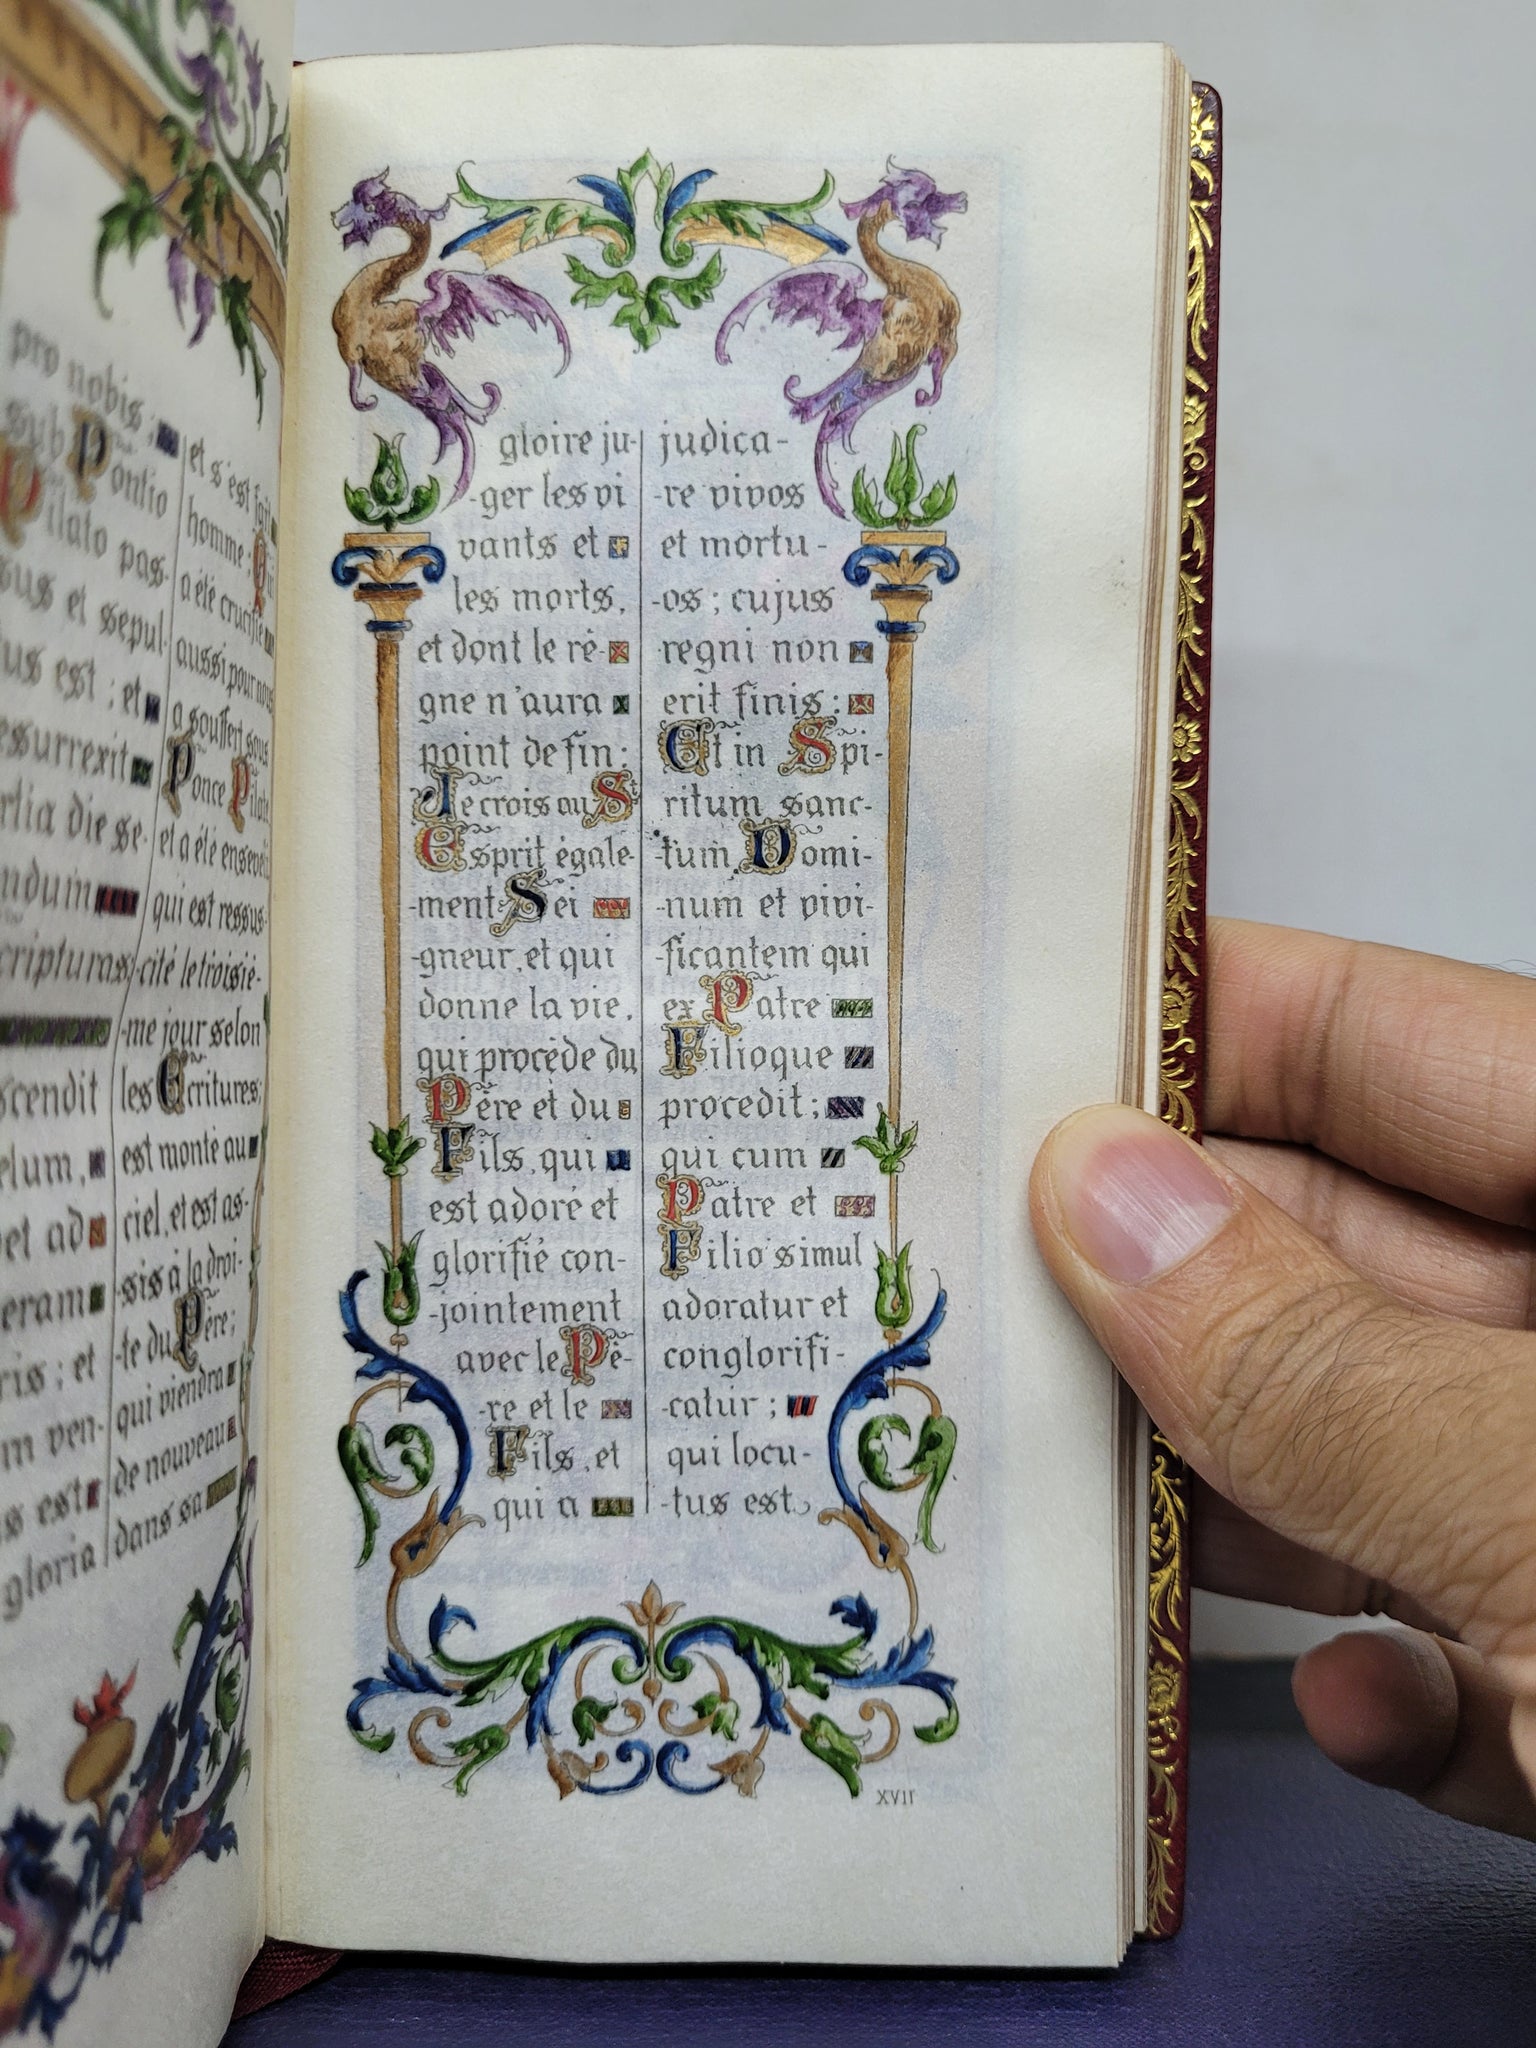 pro nobis ;
sub Pontio
Pilato pas-
sus et sepul-
tus est ; et
resurrexit
tertia die se-
cundum
scripturas
ascendit
cœlum,
sedet ad
dexteram
Patris ; et
iterum ven-
turus est
gloria
et s'est fait
homme ; Qui
a été crucifié
aussi pour nous
a souffert sous
Ponce Pilate
et a été enseveli
qui est ressus-
-cité le troisiè-
-me jour selon
les Ecritures;
est monté au
ciel, et est as-
-sis à la droi-
-te du Père;
qui viendra
de nouveau
dans sa
gloire ju-
-ger les vi
vants et
les morts,
et dont le rè-
gne n'aura
point de fin:
Je crois au St
Esprit égale-
-ment Sei
-gneur, et qui
donne la vie,
qui procède du
Père et du
Fils, qui
est adoré et
glorifié con-
-jointement
avec le Pè-
-re et le
Fils, et
qui a
judica-
-re vivos
et mortu-
-os ; cujus
regni non
erit finis :
Et in Spi-
ritum sanc-
-tum Domi-
-num et vivi-
-ficantem qui
ex Patre
Filioque
procedit ;
qui cum
Patre et
Filio simul
adoratur et
conglorifi-
-catur ;
qui locu-
-tus est
XVII